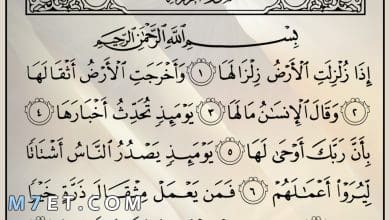 بِسْمِ اللَّهِ الرَّحْمَٰنِ الرَّحِيمِ
إِذَا زُلْزِلَتِ الْأَرْضُ زِلْزَالَهَا ١ وَأَخْرَجَتِ الْأَرْضُ أَثْقَالَهَا
٢ وَقَالَ الْإِنسَٰنُ مَا لَهَا ٣ يَوْمَئِذٍ تُحَدِّثُ أَخْبَارَهَا ٤
بِأَنَّ رَبَّكَ أَوْحَىٰ لَهَا ٥ يَوْمَئِذٍ يَصْدُرُ النَّاسُ أَشْتَاتًا
لِّيُرَوْا أَعْمَٰلَهُمْ ٦ فَمَن يَعْمَلْ مِثْقَالَ ذَرَّةٍ خَيْرًا
M7ET.COM